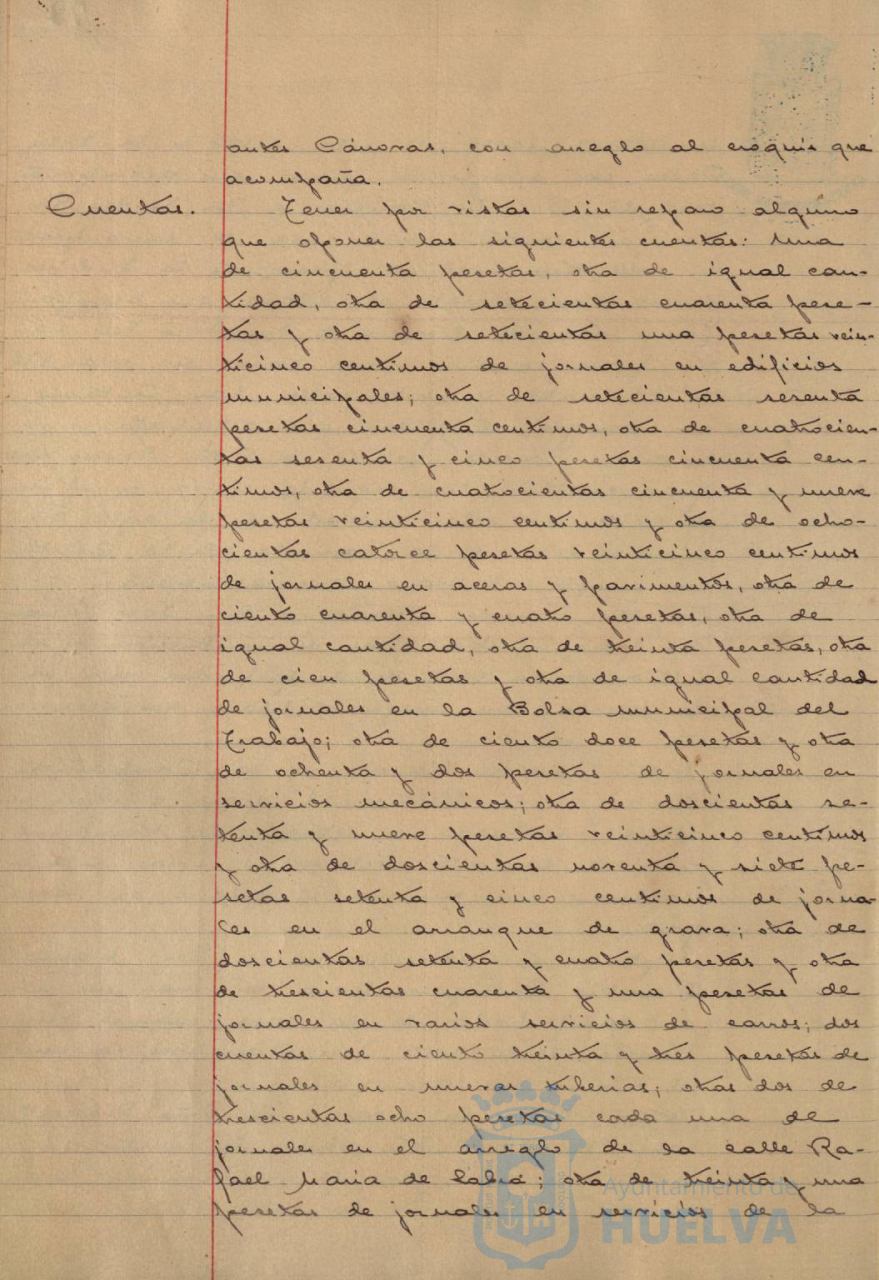 antes Cánovas, con arreglo al croquis que
acompaña.
Cuentas. Tener por vistas sin reparo alguno
que oponer las siguientes cuentas: una
de cincuenta pesetas, otra de igual can-
tidad, otra de setecientas cuarenta pese-
tas y otra de setecientas una pesetas vein-
ticinco centimos de jornales en edificios
municipales; otra de setecientas sesenta
pesetas cincuenta centimos, otra de cuatrocien-
tas sesenta y cinco pesetas cincuenta cen-
timos, otra de cuatrocientas cincuenta y nueve
pesetas veinticinco centimos y otra de ocho-
cientas catorce pesetas veinticinco centimos
de jornales en aceras y pavimentos, otra de
ciento cuarenta y cuatro pesetas, otra de
igual cantidad, otra de treinta pesetas, otra
de cien pesetas y otra de igual cantidad
de jornales en la Bolsa municipal del
Trabajo; otra de ciento doce pesetas y otra
de ochenta y dos pesetas de jornales en
servicios mecánicos; otra de doscientas se-
tenta y nueve pesetas veinticinco centimos
y otra de doscientas noventa y siete pe-
setas setenta y cinco centimos de jorna-
les en el arranque de grava; otra de
doscientas setenta y cuatro pesetas y otra
de trescientas cuarenta y una pesetas de
jornales en varios servicios de carros; dos
cuentas de ciento treinta y tres pesetas de
jornales en nuevas tuberias; otras dos de
trescientas ocho pesetas cada una de
jornales en el arreglo de la calle Ra-
fael Maria de Labra; otra de treinta y una
pesetas de jornales en servicios de la
Ayuntamiento de
HUELVA